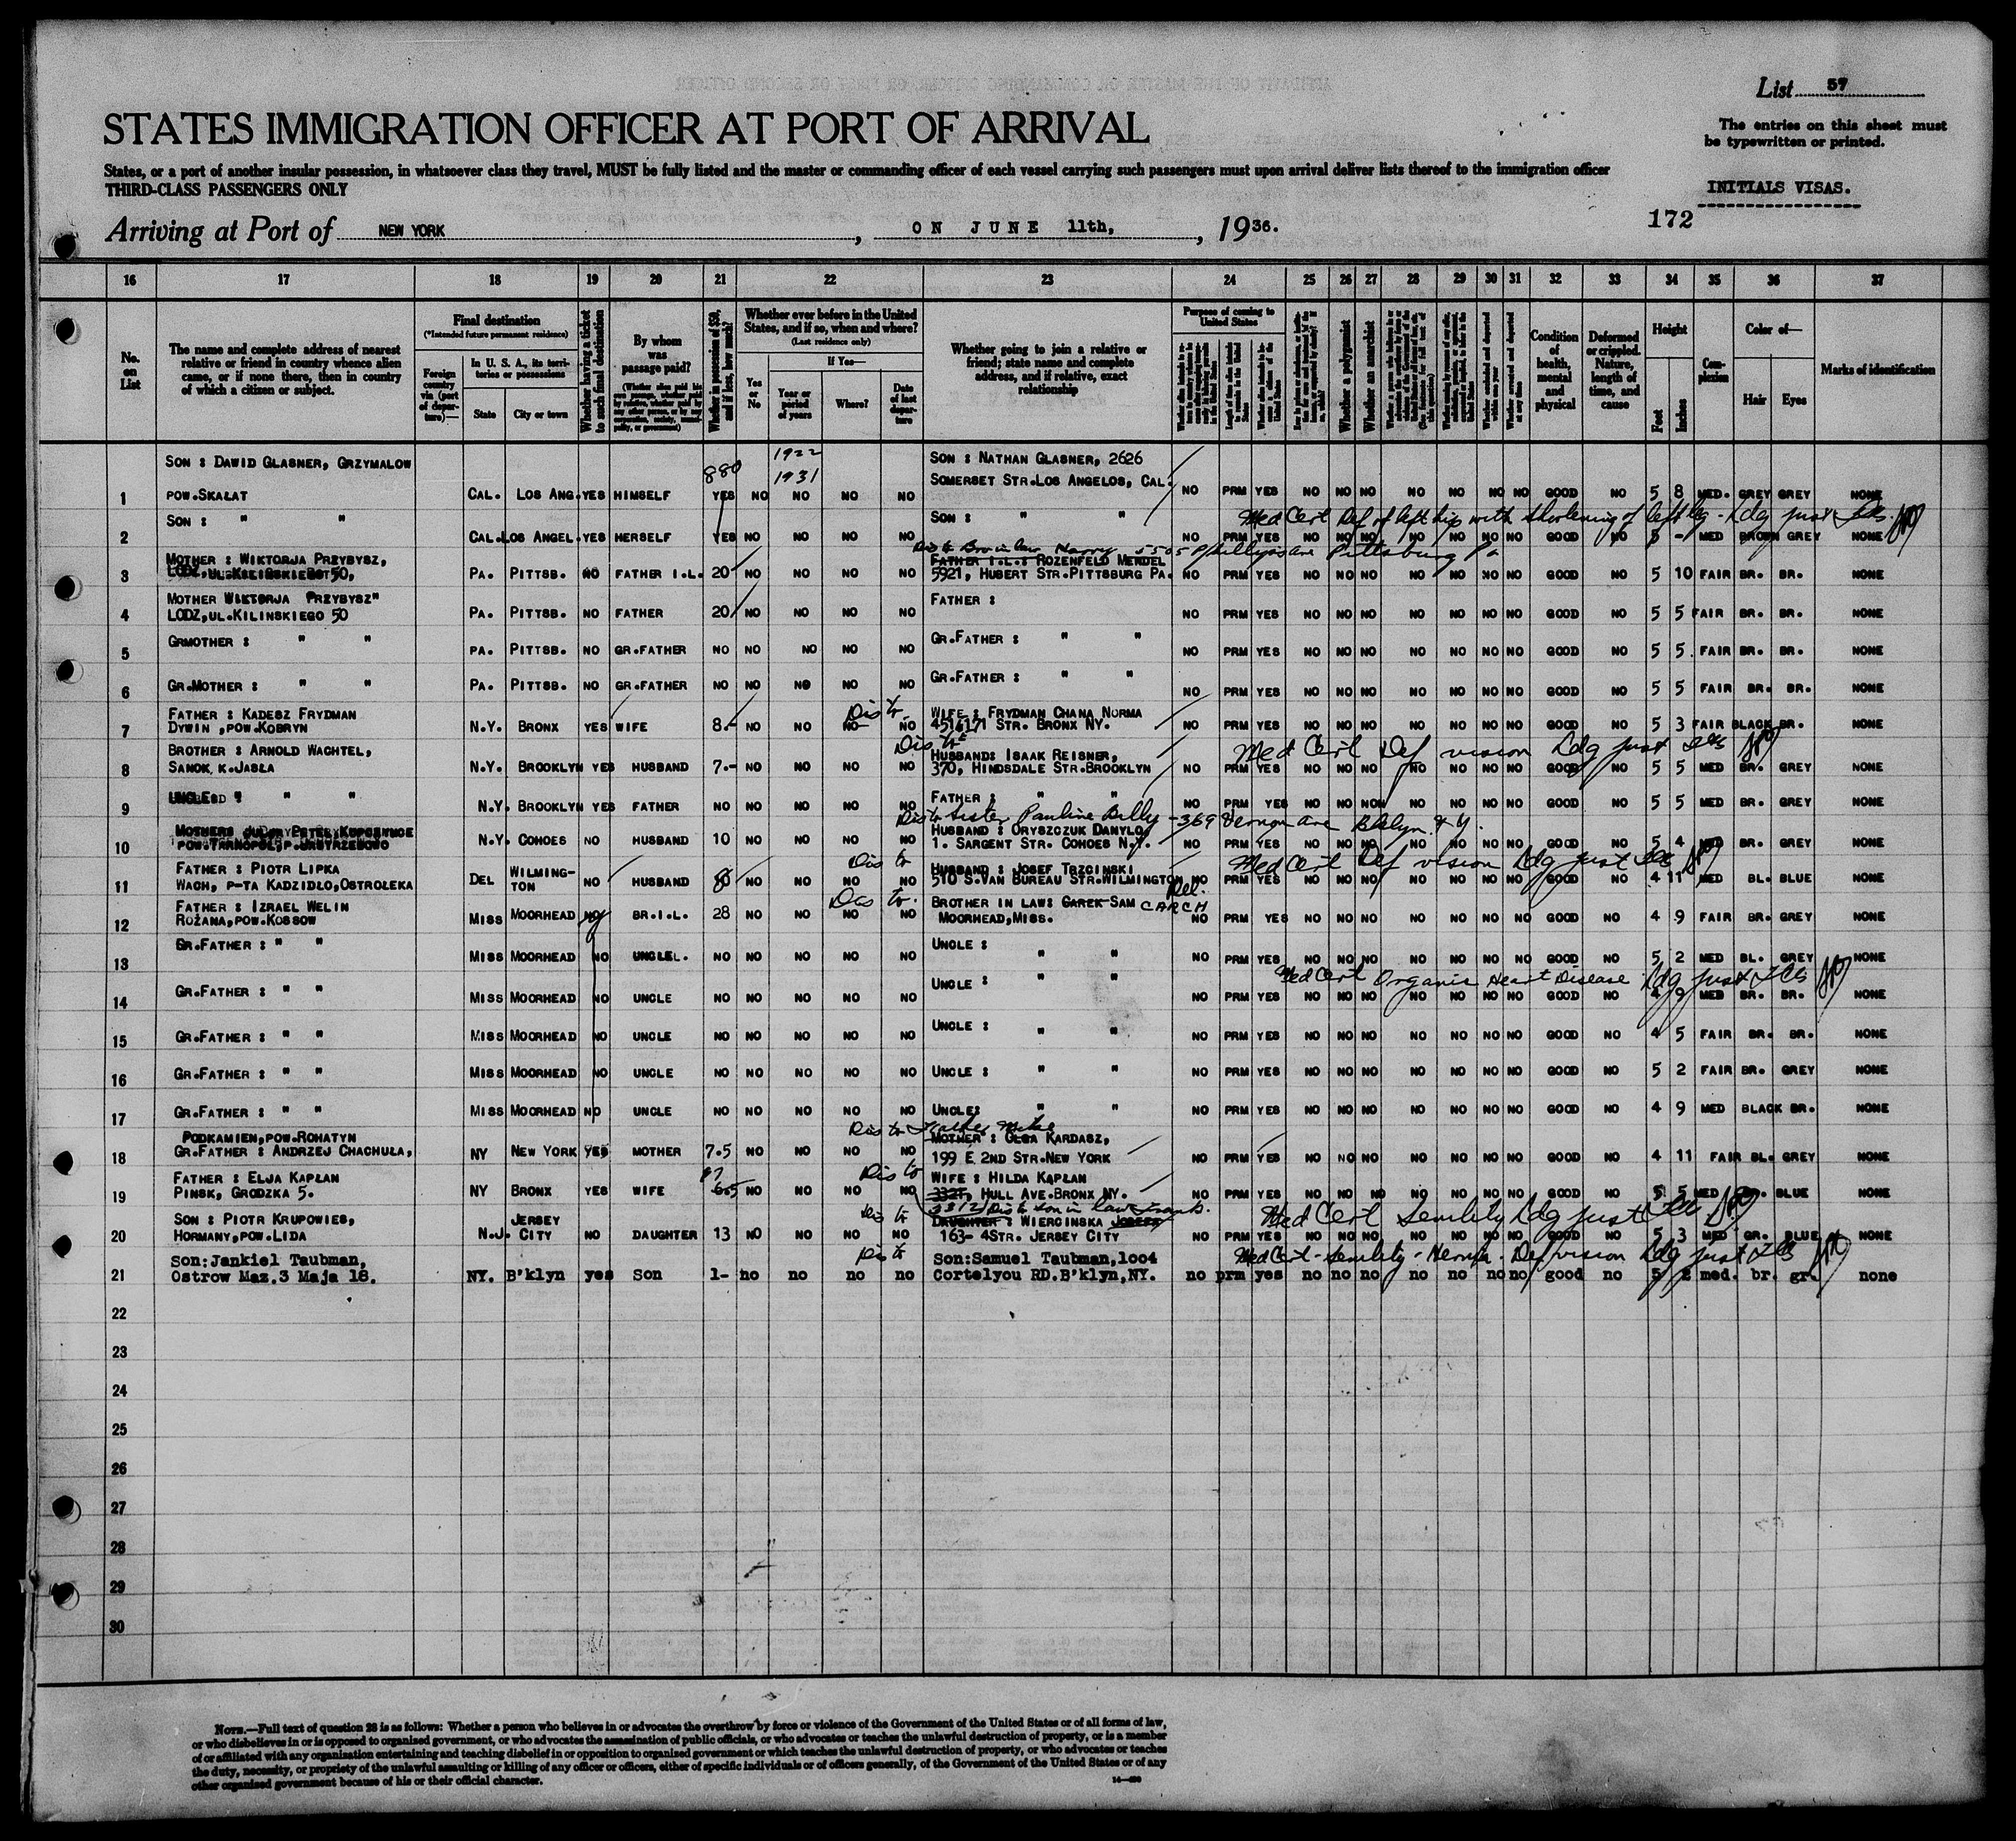 List 57
STATES IMMIGRATION OFFICER AT PORT OF ARRIVAL
The entries on this sheet must
be typewritten or printed.
States, or a port of another insular possession, in whatsoever class they travel, MUST be fully listed and the master or commanding officer of each vessel carrying such passengers must upon arrival deliver lists thereof to the immigration officer
THIRD-CLASS PASSENGERS ONLY
INITIALS VISAS.
172
Arriving at Port of NEW YORK, ON JUNE 11th, 1936.
16 17 18 19 20 21 22 23 24 25 26 27 28 29 30 31 32 33 34 35 36 37
No. on List
The name and complete address of nearest relative or friend in country whence alien came, or if none there, then in country of which a citizen or subject.
Final destination
(*Intended future permanent residence)
Foreign country via (port of departure)—
In U. S. A., its territories or possessions
State City or town
Whether having a ticket to such final destination
By whom was passage paid?
Whether in possession of $50, and if less, how much?
Whether ever before in the United States, and if so, when and where?
(Last residence only)
Yes or No
If Yes—
Year or period of years
Where?
Date of last departure
Whether going to join a relative or friend; state name and complete address, and if relative, exact relationship
Purpose of coming to United States
Whether a polygamist
Whether an anarchist
Condition of health, mental and physical
Deformed or crippled. Nature, length of time, and cause
Height
Feet Inches
Complexion
Color of—
Hair Eyes
Marks of identification
1922
SON : DAWID GLASNER, GRZYMALOW 880 1931 SON : NATHAN GLASNER, 2626
SOMERSET STR.LOS ANGELOS, CAL.
1 POW.SKAŁAT CAL. LOS ANG. YES HIMSELF YES NO NO NO NO NO PRM YES NO NO NO NO NO NO NO GOOD NO 5 8 MED. GREY GREY NONE
SON : " " SON : " " Med Cert Def of left hip with shortening of left leg - Ldg just
2 CAL. LOS ANGEL. YES HERSELF YES NO NO NO NO NO PRM YES NO NO NO NO NO NO NO GOOD NO 5 - MED BROWN GREY NONE
Dis to Bro in law Harry 5505 Ave Pittsburg Pa
MOTHER : WIKTORJA PRZYBYSZ, FATHER I.L.: ROZENFELD MENDEL
3 PA. PITTSB. NO FATHER I.L. 20 NO NO NO NO 5921, HUBERT STR.PITTSBURG PA. NO PRM YES NO NO NO NO NO NO NO GOOD NO 5 10 FAIR BR. BR. NONE
MOTHER WIKTORJA PRZYBYSZ" FATHER :
4 LODZ,UL.KILINSKIEGO 50 PA. PITTSB. NO FATHER 20 NO NO NO NO NO PRM YES NO NO NO NO NO NO NO GOOD NO 5 5 FAIR BR. BR. NONE
GRMOTHER : " " GR.FATHER : " "
5 PA. PITTSB. NO GR.FATHER NO NO NO NO NO NO PRM YES NO NO NO NO NO NO NO GOOD NO 5 5. FAIR BR. BR. NONE
GR.MOTHER : " " GR.FATHER : " "
6 PA. PITTSB. NO GR.FATHER NO NO NO NO NO NO PRM YES NO NO NO NO NO NO NO GOOD NO 5 5 FAIR BR. BR. NONE
FATHER : KADESZ FRYDMAN Dis to WIFE : FRYDMAN CHANA NORMA
7 DYWIN ,POW.KOBRYN N.Y. BRONX YES WIFE 8.- NO NO NO NO 451 STR. BRONX NY. NO PRM YES NO NO NO NO NO NO NO GOOD NO 5 3 FAIR BLACK BR. NONE
BROTHER : ARNOLD WACHTEL, Dis to HUSBAND: ISAAK REISNER, Med Cert Def vision Ldg just
8 SANOK, K.JASŁA N.Y. BROOKLYN YES HUSBAND 7.- NO NO NO NO 370, HINDSDALE STR.BROOKLYN NO PRM YES NO NO NO NO NO NO NO GOOD NO 5 5 MED BR. GREY NONE
" " FATHER : " "
9 N.Y. BROOKLYN YES FATHER NO NO NO NO NO NO PRM YES NO NO NO NO NO NO NO GOOD NO 5 5 MED BR. GREY NONE
Dis to Sister Pauline Billy - 369 Vernon Ave Bklyn. N.Y.
HUSBAND : ORYSZCZUK DANYLO,
10 N.Y. COHOES NO HUSBAND 10 NO NO NO NO 1. SARGENT STR. COHOES N.Y. NO PRM YES NO NO NO NO NO NO NO GOOD NO 5 4 MED BR. GREY NONE
FATHER : PIOTR LIPKA WILMING- Dis to HUSBAND : JOSEF TRZCINSKI Med Cert Def vision Ldg just
11 WACH, P-TA KADZIDŁO,OSTROŁEKA DEL TON NO HUSBAND NO NO NO NO 510 S.VAN BUREAU STR.WILMINGTON Del. NO PRM YES NO NO NO NO NO NO NO GOOD NO 4 11 MED BL. BLUE NONE
FATHER : IZRAEL WELIN Dis to. BROTHER IN LAW: GAREK SAM CARCH
12 ROŻANA,POW.KOSSOW MISS MOORHEAD NO BR.I.L. 28 NO NO NO NO MOORHEAD,MISS. NO PRM YES NO NO NO NO NO NO NO GOOD NO 4 9 FAIR BR. GREY NONE
GR.FATHER : " " UNCLE : " "
13 MISS MOORHEAD NO UNCLEL. NO NO NO NO NO NO PRM YES NO NO NO NO NO NO NO GOOD NO 5 2 MED BL. GREY NONE
GR.FATHER : " " UNCLE : " " Med Cert Organic Heart Disease Ldg just
14 MISS MOORHEAD NO UNCLE NO NO NO NO NO NO PRM YES NO NO NO NO NO NO NO GOOD NO 4 9 MED BR. BR. NONE
UNCLE : " "
15 GR.FATHER : " " MISS MOORHEAD NO UNCLE NO NO NO NO NO NO PRM YES NO NO NO NO NO NO NO GOOD NO 4 5 FAIR BR. BR. NONE
16 GR.FATHER : " " MISS MOORHEAD NO UNCLE NO NO NO NO NO UNCLE : " " NO PRM YES NO NO NO NO NO NO NO GOOD NO 5 2 FAIR BR. GREY NONE
17 GR.FATHER : " " MISS MOORHEAD NO UNCLE NO NO NO NO NO UNCLE: " " NO PRM YES NO NO NO NO NO NO NO GOOD NO 4 9 MED BLACK BR. NONE
Dis to Father Mike
PODKAMIEN,POW.ROHATYN MOTHER : OLGA KARDASZ,
18 GR.FATHER : ANDRZEJ CHACHUŁA, NY NEW YORK YES MOTHER 7.5 NO NO NO NO 199 E 2ND STR.NEW YORK NO PRM YES NO NO NO NO NO NO NO GOOD NO 4 11 FAIR BL. GREY NONE
FATHER : ELJA KAPŁAN Dis to WIFE : HILDA KAPŁAN
19 PINSK, GRODZKA 5. NY BRONX YES WIFE NO NO NO NO HULL AVE.BRONX NY. NO PRM YES NO NO NO NO NO NO NO GOOD NO 5 5 MED BR. BLUE NONE
3312 Dis to son in law Frank.
SON : PIOTR KRUPOWIES, JERSEY Dis to DAUGHTER : WIERCINSKA Med Cert Senility Ldg just
20 HORMANY,POW.LIDA N.J. CITY NO DAUGHTER 13 NO NO NO NO 163- 4STR. JERSEY CITY NO PRM YES NO NO NO NO NO NO NO GOOD NO 5 3 MED GR. BLUE NONE
Son:Jankiel Taubman, Dis to Son:Samuel Taubman,1004 Med Cert - Senility - Hernia. Def vision Ldg just
21 Ostrow Maz.3 Maja 18. NY. B'klyn yes Son 1- no no no no Cortelyou RD.B'klyn,NY. no prm yes no no no no no no no good no 5 2 med. br. gr. none
22
23
24
25
26
27
28
29
30
NOTE.—Full text of question 28 is as follows: Whether a person who believes in or advocates the overthrow by force or violence of the Government of the United States or of all forms of law,
or who disbelieves in or is opposed to organized government, or who advocates the assassination of public officials, or who advocates or teaches the unlawful destruction of property, or is a member
of or affiliated with any organization entertaining and teaching disbelief in or opposition to organized government or which teaches the unlawful destruction of property, or who advocates or teaches
the duty, necessity, or propriety of the unlawful assaulting or killing of any officer or officers, either of specific individuals or of officers generally, of the Government of the United States or of any
other organized government because of his or their official character.